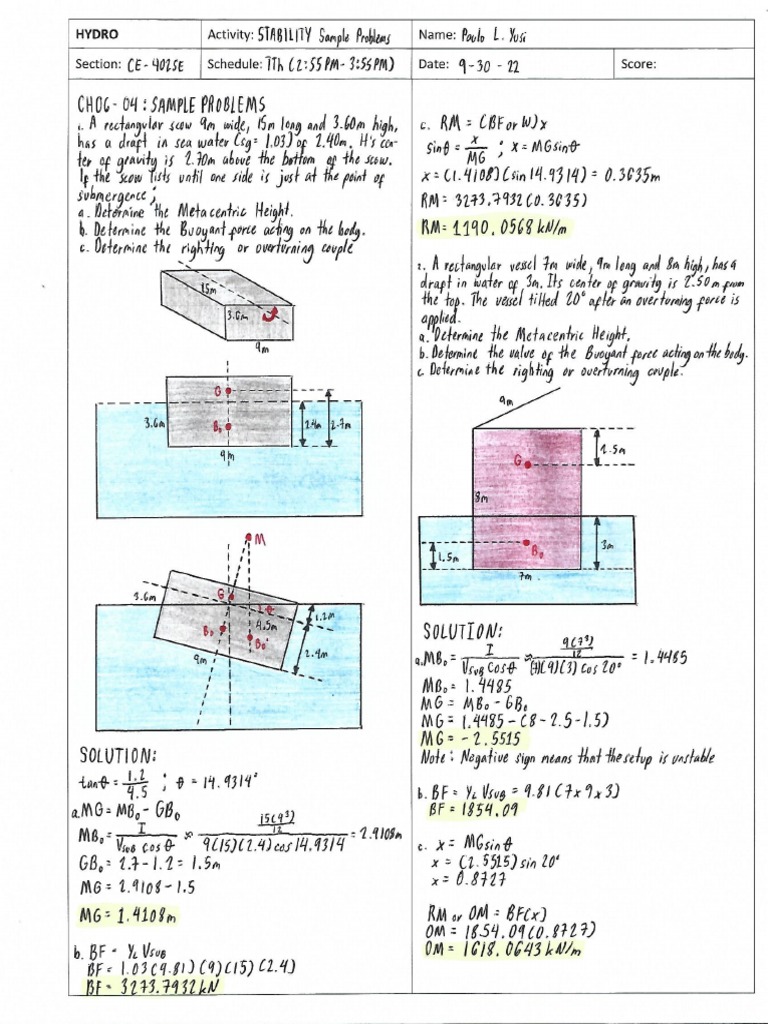 HYDRO
Activity: STABILITY Sample Problems
Name: Paulo L. Yusi
Section: CE-402SE
Schedule: TTh (2:55PM-3:55PM)
Date: 9-30-22
Score:
CHO6-04: SAMPLE PROBLEMS
1. A rectangular scow 9m wide, 15m long and 3.60m high,
has a draft in sea water (sg= 1.03) of 2.40m. It's cen-
ter of gravity is 2.70m above the bottom of the scow.
If the scow lists until one side is just at the point of
submergence;
a. Determine the Metacentric Height.
b. Determine the Buoyant force acting on the body.
c. Determine the righting or overturning couple
15m
3.6m
9m
G
3.6m
B₀
2.4m
2.7m
9m
M
3.6m
G
θ
1.2m
B₀
4.5m
B₀'
2.4m
9m
SOLUTION:
tanθ = 1.2/4.5 ; θ = 14.9314°
a. MG = MB₀ - GB₀
MB₀ = I/(Vsub cosθ) ≈ (15(9³)/12)/(9(15)(2.4)cos14.9314) = 2.9108m
GB₀ = 2.7-1.2 = 1.5m
MG = 2.9108-1.5
MG = 1.4108m
b. BF = γL Vsub
BF = 1.03(9.81)(9)(15)(2.4)
BF = 3273.7932kN
c. RM = (BF or W)x
sinθ = x/MG ; x = MGsinθ
x = (1.4108)(sin14.9314) = 0.3635m
RM = 3273.7932(0.3635)
RM = 1190.0568kN/m
2. A rectangular vessel 7m wide, 9m long and 8m high, has a
draft in water of 3m. Its center of gravity is 2.50m from
the top. The vessel tilted 20° after an overturning force is
applied.
a. Determine the Metacentric Height.
b. Determine the value of the Buoyant force acting on the body.
c. Determine the righting or overturning couple.
9m
2.5m
G
8m
3m
B₀
1.5m
7m
SOLUTION:
a. MB₀ = I/(Vsub cosθ) ≈ (9(7³)/12)/((7)(9)(3)cos20°) = 1.4485
MB₀ = 1.4485
MG = MB₀ - GB₀
MG = 1.4485-(8-2.5-1.5)
MG = -2.5515
Note: Negative sign means that the setup is unstable
b. BF = γL Vsub = 9.81(7x9x3)
BF = 1854.09
c. x = MGsinθ
x = (2.5515)sin20°
x = 0.8727
RM or OM = BF(x)
OM = 1854.09(0.8727)
OM = 1618.0643kN/m